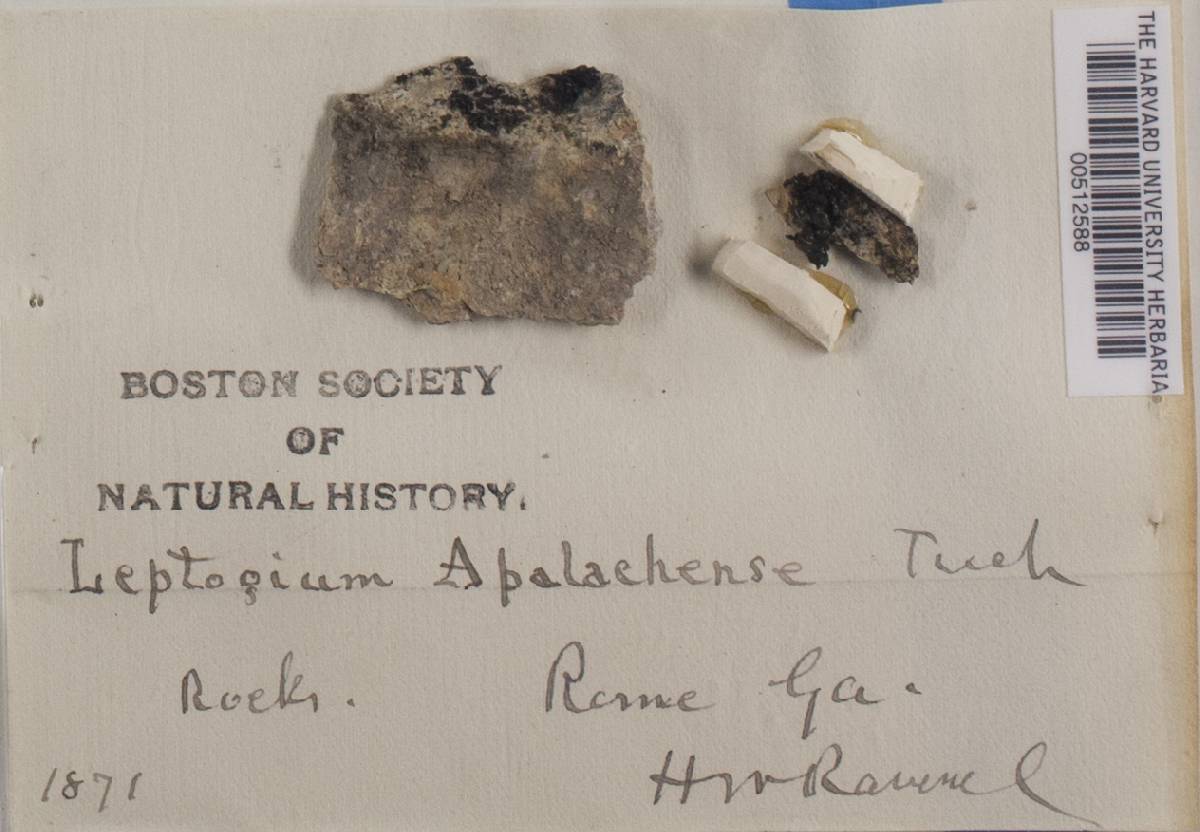 THE HARVARD UNIVERSITY HERBARIA
00512588
BOSTON SOCIETY
OF
NATURAL HISTORY.
Leptogium Apalachense Tuck
Rocks. Rome Ga.
1871 H W Ravenel